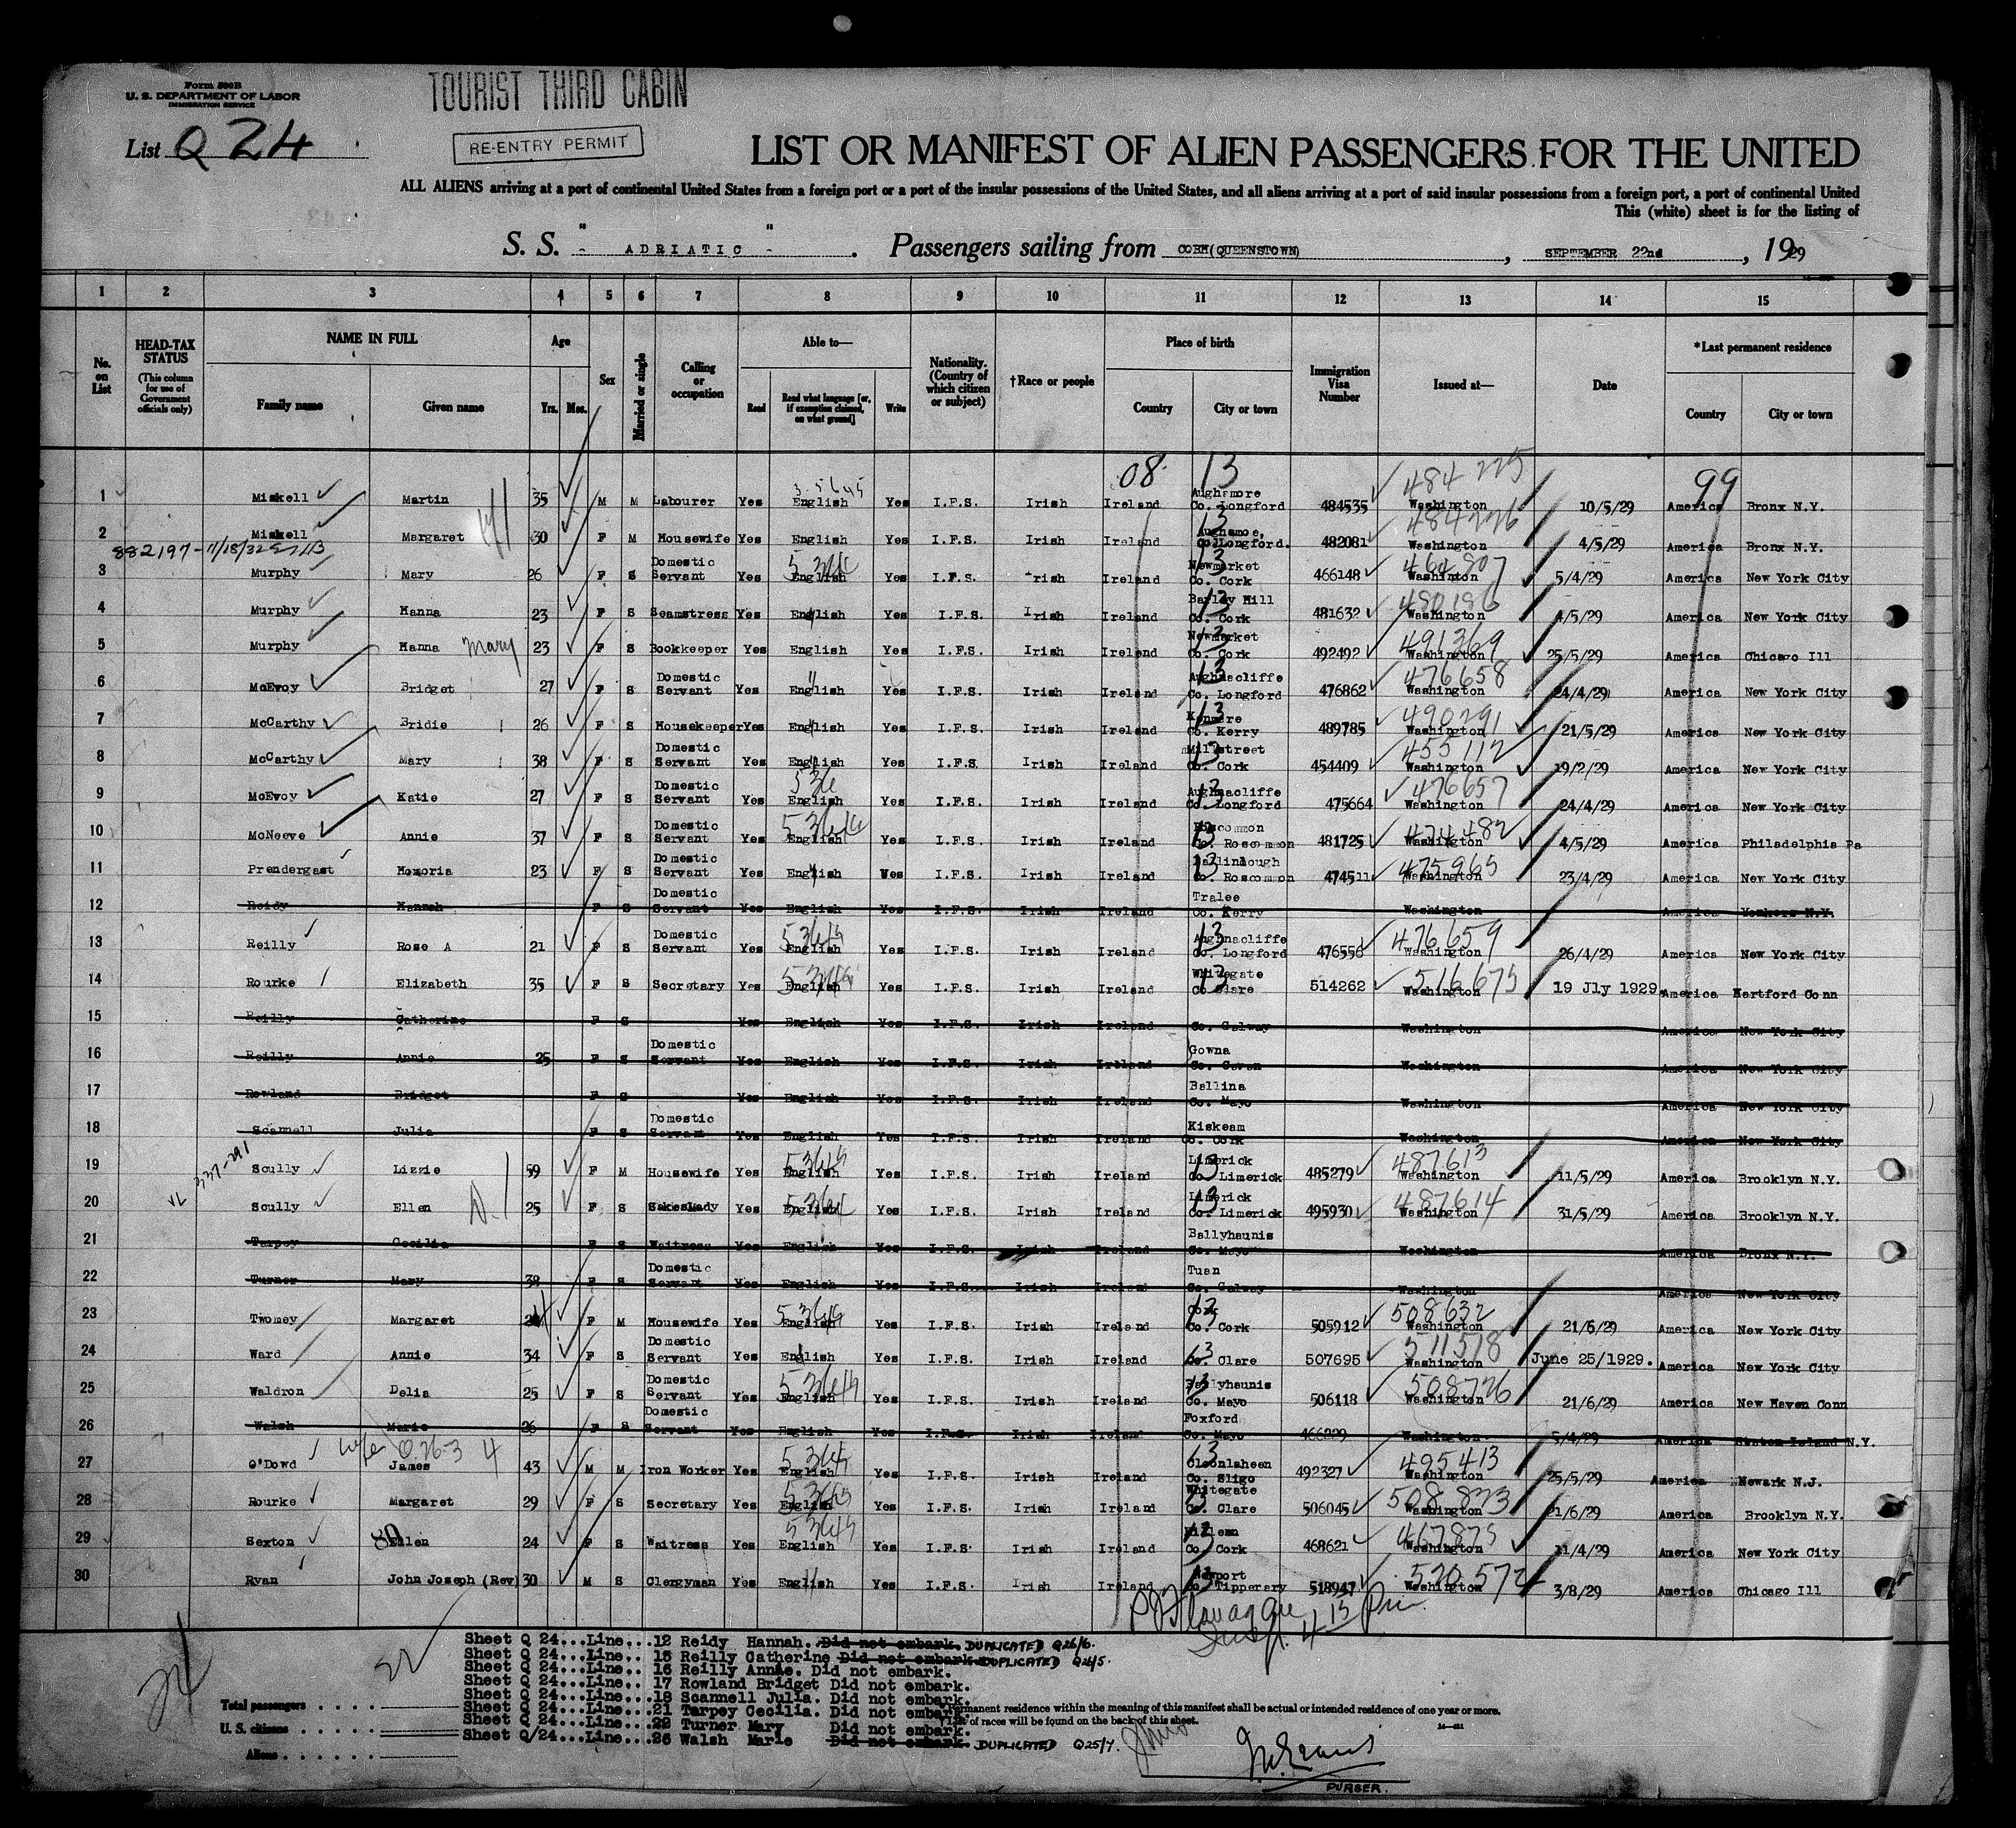 Form 500B
U. S. DEPARTMENT OF LABOR
IMMIGRATION SERVICE
TOURIST THIRD CABIN
List Q 24
RE-ENTRY PERMIT
LIST OR MANIFEST OF ALIEN PASSENGERS FOR THE UNITED
ALL ALIENS arriving at a port of continental United States from a foreign port or a port of the insular possessions of the United States, and all aliens arriving at a port of said insular possessions from a foreign port, a port of continental United
This (white) sheet is for the listing of
S. S. " ADRIATIC " . Passengers sailing from COBH(QUEENSTOWN) , SEPTEMBER 22nd , 1929
1 2 3 4 5 6 7 8 9 10 11 12 13 14 15
No. on List
HEAD-TAX STATUS (This column for use of Government officials only)
NAME IN FULL Family name Given name
Age Yrs. Mos.
Sex
Married or single
Calling or occupation
Able to— Read Read what language [or, if exemption claimed, on what ground] Write
Nationality. (Country of which citizen or subject)
†Race or people
Place of birth Country City or town
Immigration Visa Number
Issued at—
Date
*Last permanent residence Country City or town
08 13 99
1 Miskell Martin 35 M M Labourer Yes English Yes I.F.S. Irish Ireland Aughamore Co. Longford 484535 Washington 484225 10/5/29 America Bronx N.Y.
2 Miskell Margaret 30 F M Housewife Yes English Yes I.F.S. Irish Ireland Co. Longford. 482081 Washington 484226 4/5/29 America Bronx N.Y.
882197-11/18/32
3 Murphy Mary 26 F S Domestic Servant Yes English Yes I.F.S. Irish Ireland Newmarket Co. Cork 466148 Washington 464807 5/4/29 America New York City
4 Murphy Hanna 23 F S Seamstress Yes English Yes I.F.S. Irish Ireland Barley Hill Co. Cork 481632 Washington 480186 4/5/29 America New York City
5 Murphy Hanna Mary 23 F S Bookkeeper Yes English Yes I.F.S. Irish Ireland Newmarket Co. Cork 492492 Washington 491369 25/5/29 America Chicago Ill
6 McEvoy Bridget 27 F S Domestic Servant Yes English Yes I.F.S. Irish Ireland Aughnacliffe Co. Longford 476862 Washington 476658 24/4/29 America New York City
7 McCarthy Bridie 26 F S Housekeeper Yes English Yes I.F.S. Irish Ireland Kenmare Co. Kerry 489785 Washington 490291 21/5/29 America New York City
8 McCarthy Mary 38 F S Domestic Servant Yes English Yes I.F.S. Irish Ireland Millstreet Co. Cork 454409 Washington 455112 19/2/29 America New York City
9 McEvoy Katie 27 F S Domestic Servant Yes English Yes I.F.S. Irish Ireland Aughnacliffe Co. Longford 475664 Washington 476657 24/4/29 America New York City
10 McNeeve Annie 37 F S Domestic Servant Yes English Yes I.F.S. Irish Ireland Roscommon Co. Roscommon 481725 Washington 474482 4/5/29 America Philadelphia Pa
11 Prendergast Honoria 23 F S Domestic Servant Yes English Yes I.F.S. Irish Ireland Ballinlough Co. Roscommon 474511 Washington 475965 23/4/29 America New York City
12 Reidy Hannah F S Domestic Servant Yes English Yes I.F.S. Irish Ireland Tralee Co. Kerry Washington America Yonkers N.Y.
13 Reilly Rose A 21 F S Domestic Servant Yes English Yes I.F.S. Irish Ireland Aughnacliffe Co. Longford 476556 Washington 476659 26/4/29 America New York City
14 Rourke Elizabeth 35 F S Secretary Yes English Yes I.F.S. Irish Ireland Whitegate Co Clare 514262 Washington 516675 19 Jly 1929. America Hartford Conn
15 Reilly Catherine F S Yes English Yes I.F.S. Irish Ireland Co. Galway Washington America New York City
16 Reilly Annie 25 F S Domestic Servant Yes English Yes I.F.S. Irish Ireland Gowna Co. Cavan Washington America New York City
17 Rowland Bridget F S Yes English Yes I.F.S. Irish Ireland Ballina Co. Mayo Washington America New York City
18 Scannell Julia F S Domestic Servant Yes English Yes I.F.S. Irish Ireland Kiskeam Co. Cork Washington America New York City
19 Scully Lizzie 59 F M Housewife Yes English Yes I.F.S. Irish Ireland Limerick Co Limerick 485279 Washington 487613 11/5/29 America Brooklyn N.Y.
337-291
20 Scully Ellen 25 F S Yes English Yes I.F.S. Irish Ireland Limerick Co. Limerick 495930 Washington 487614 31/5/29 America Brooklyn N.Y.
21 Tarpey Cecilia F S Waitress Yes English Yes I.F.S. Irish Ireland Ballyhaunis Co. Mayo Washington America Bronx N.Y.
22 Turner Mary 38 F S Domestic Servant Yes English Yes I.F.S. Irish Ireland Tuan Co. Galway Washington America New York City
23 Twomey Margaret F M Housewife Yes English Yes I.F.S. Irish Ireland Cork Co. Cork 505912 Washington 508632 21/6/29 America New York City
24 Ward Annie 34 F S Domestic Servant Yes English Yes I.F.S. Irish Ireland Co. Clare 507695 Washington 511518 June 25/1929. America New York City
25 Waldron Delia 25 F S Domestic Servant Yes English Yes I.F.S. Irish Ireland Ballyhaunis Co. Mayo 506118 Washington 508726 21/6/29 America New Haven Conn
26 Walsh Marie 26 F S Domestic Servant Yes English Yes I.F.S. Irish Ireland Foxford Co. Mayo 466229 Washington 5/4/29 America Staten Island N.Y.
27 O'Dowd James 43 M M Iron Worker Yes English Yes I.F.S. Irish Ireland Cloonlaheen Co. Sligo 492327 Washington 495413 25/5/29 America Newark N.J.
28 Rourke Margaret 29 F S Secretary Yes English Yes I.F.S. Irish Ireland Whitegate Co. Clare 506045 Washington 508823 21/6/29 America Brooklyn N.Y.
29 Sexton Ellen 24 F S Waitress Yes English Yes I.F.S. Irish Ireland Co Cork 468621 Washington 467875 11/4/29 America New York City
30 Ryan John Joseph (Rev) 30 M S Clergyman Yes English Yes I.F.S. Irish Ireland Newport Co. Tipperary 518947 Washington 520572 3/8/29 America Chicago Ill
Sheet Q 24...Line...12 Reidy Hannah. Did not embark. DUPLICATED Q26/6.
Sheet Q 24...Line.. 15 Reilly Catherine Did not embark. DUPLICATED Q24/5.
Sheet Q 24...Line.. 16 Reilly Annie. Did not embark.
Sheet Q 24...Line.. 17 Rowland Bridget Did not embark.
Sheet Q 24...Line...18 Scannell Julia. Did not embark.
Sheet Q 24...Line...21 Tarpey Cecilia. Did not embark.
Sheet Q 24...Line...22 Turner Mary Did not embark.
Sheet Q/24...Line...26 Walsh Marie Did not embark. DUPLICATED Q25/7.
24
22
Total passengers
U. S. citizens
Aliens
*Permanent residence within the meaning of this manifest shall be actual or intended residence of one year or more.
†List of races will be found on the back of this sheet.
PURSER.